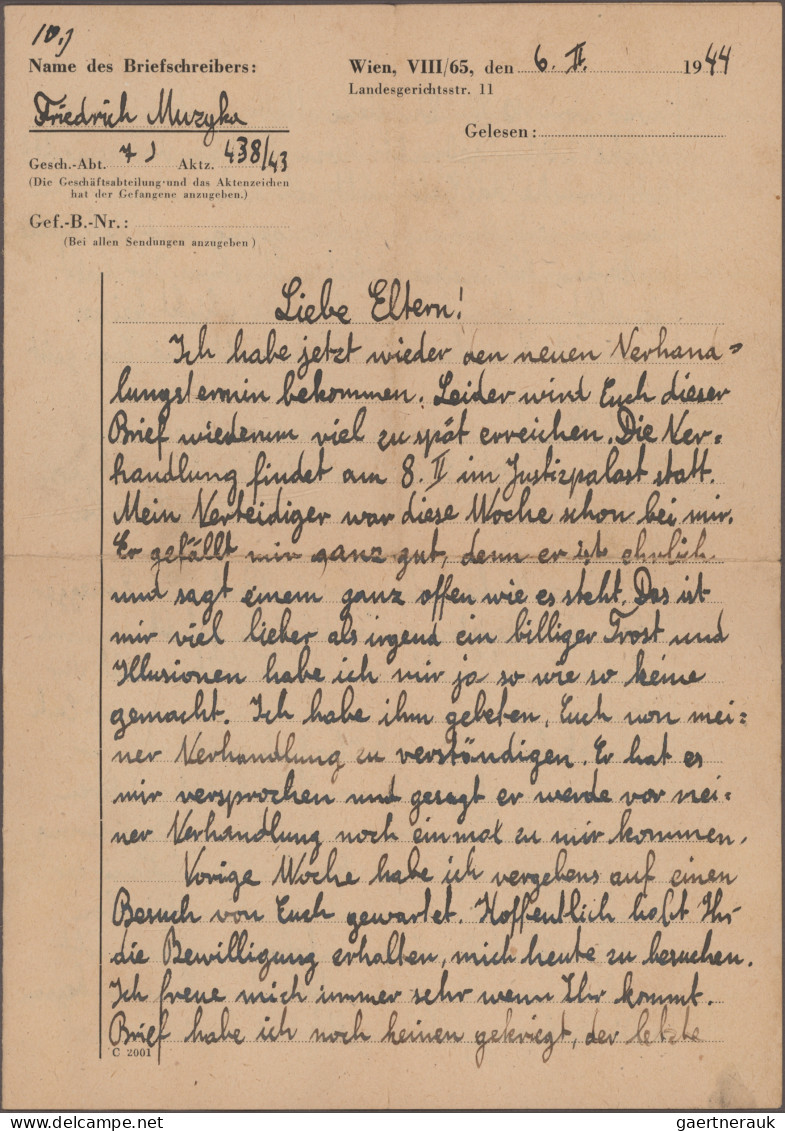 10.)
Name des Briefschreibers:
Wien, VIII/65, den 6. II. 1944
Landesgerichtsstr. 11
Friedrich Muzyka
Gelesen:
Gesch.-Abt. 7 J Aktz. 438/43
(Die Geschäftsabteilung und das Aktenzeichen
hat der Gefangene anzugeben.)
Gef.-B.-Nr.:
(Bei allen Sendungen anzugeben)
Liebe Eltern!
Ich habe jetzt wieder den neuen Verhand=
lungstermin bekommen. Leider wird Euch dieser
Brief wiederum viel zu spät erreichen. Die Ver=
handlung findet am 8. II im Justizpalast statt.
Mein Verteidiger war diese Woche schon bei mir.
Er gefällt mir ganz gut, denn er ist ehrlich
und sagt einem ganz offen wie es steht. Das ist
mir viel lieber als irgend ein billiger Trost und
Illusionen habe ich mir ja so wie so keine
gemacht. Ich habe ihm gebeten, Euch von mei=
ner Verhandlung zu verständigen. Er hat es
mir versprochen und gesagt er werde vor mei=
ner Verhandlung noch einmal zu mir kommen.
Vorige Woche habe ich vergebens auf einen
Besuch von Euch gewartet. Hoffentlich habt Ihr
die Bewilligung erhalten, mich heute zu besuchen.
Ich freue mich immer sehr wenn Ihr kommt.
Brief habe ich noch keinen gekriegt, der letzte
C 2001
gaertnerauk